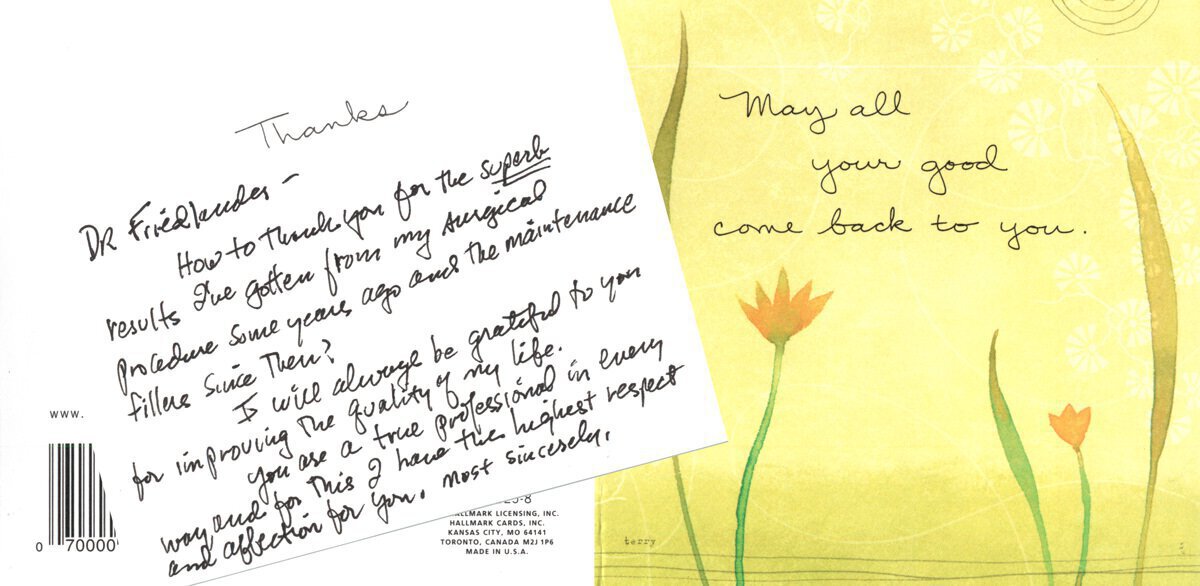 Thanks
DR Friedlander -
How to thank you for the superb
results I've gotten from my surgical
procedure some years ago and the maintenance
fillers since then?
I will always be grateful to you
for improving the quality of my life.
You are a true professional in every
way and for this I have the highest respect
and affection for you. Most sincerely,
www.
0 70000
25-8
HALLMARK LICENSING, INC.
HALLMARK CARDS, INC.
KANSAS CITY, MO 64141
TORONTO, CANADA M2J 1P6
MADE IN U.S.A.
May all
your good
come back to you.
terry